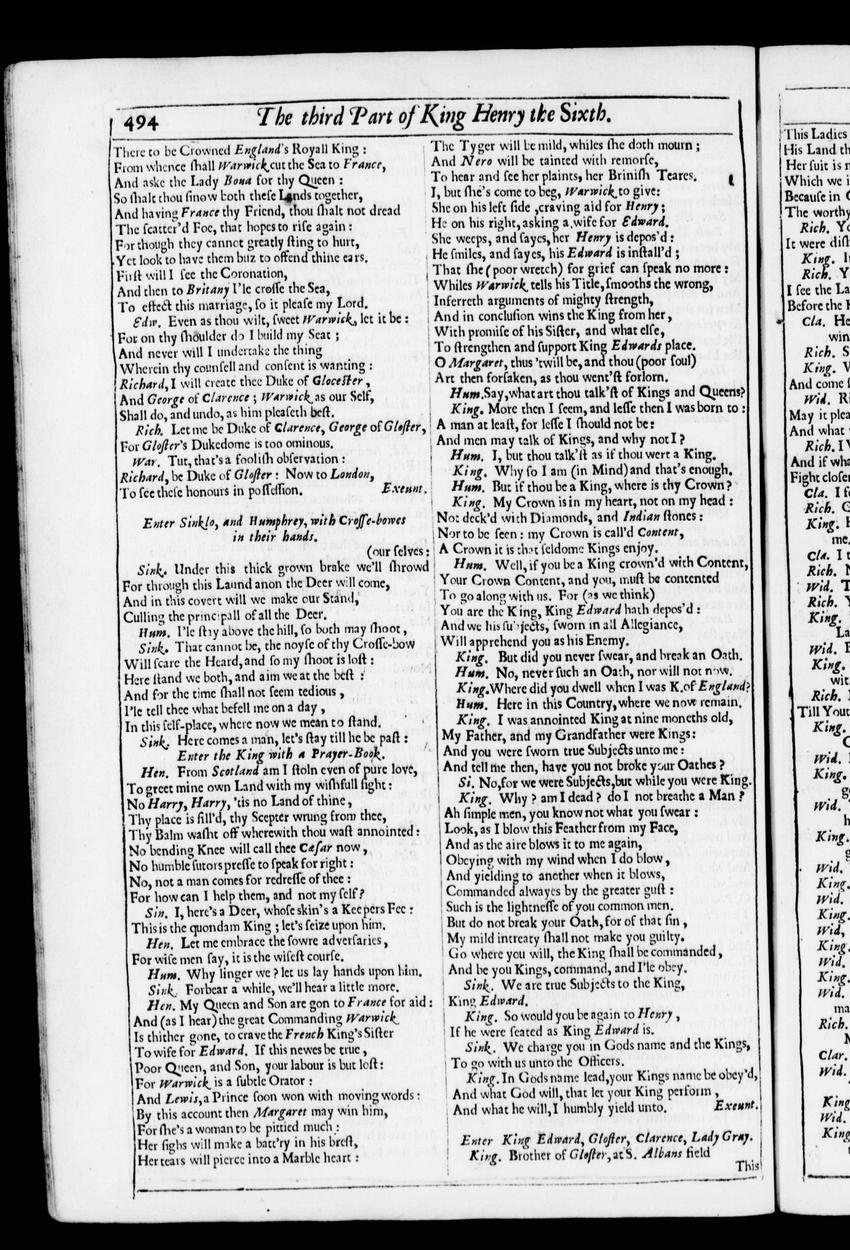 494 The third Part of King Henry the Sixth.
There to be Crowned England's Royall King :
From whence ſhall Warwick cut the Sea to France,
And aske the Lady Bona for thy Queen :
So ſhalt thou ſinow both theſe Lands together,
And having France thy Friend, thou ſhalt not dread
The ſcatter'd Foe, that hopes to riſe again :
For though they cannot greatly ſting to hurt,
Yet look to have them buz to offend thine ears.
Firſt will I ſee the Coronation,
And then to Britany I'le croſſe the Sea,
To effect this marriage, ſo it pleaſe my Lord.
Edw. Even as thou wilt, ſweet Warwick, let it be :
For on thy ſhoulder do I build my Seat ;
And never will I undertake the thing
Wherein thy counſell and conſent is wanting :
Richard, I will create thee Duke of Gloceſter,
And George of Clarence ; Warwick as our Self,
Shall do, and undo, as him pleaſeth beſt.
Rich. Let me be Duke of Clarence, George of Gloſter,
For Gloſter's Dukedome is too ominous.
War. Tut, that's a fooliſh obſervation :
Richard, be Duke of Gloſter : Now to London,
To ſee theſe honours in poſſeſſion. Exeunt.
Enter Sinklo, and Humphrey, with Croſſe-bowes
in their hands.
(our ſelves :
Sink. Under this thick grown brake we'll ſhrowd
For through this Laund anon the Deer will come,
And in this covert will we make our Stand,
Culling the principall of all the Deer.
Hum. I'le ſtay above the hill, ſo both may ſhoot,
Sink. That cannot be, the noyſe of thy Croſſe-bow
Will ſcare the Heard, and ſo my ſhoot is loſt :
Here ſtand we both, and aim we at the beſt :
And for the time ſhall not ſeem tedious,
I'le tell thee what befell me on a day,
In this ſelf-place, where now we mean to ſtand.
Sink. Here comes a man, let's ſtay till he be paſt :
Enter the King with a Prayer-Book.
Hen. From Scotland am I ſtoln even of pure love,
To greet mine own Land with my wiſhfull ſight :
No Harry, Harry, 'tis no Land of thine,
Thy place is fill'd, thy Scepter wrung from thee,
Thy Balm waſht off wherewith thou waſt annointed :
No bending Knee will call thee Cæſar now,
No humble ſutors preſſe to ſpeak for right :
No, not a man comes for redreſſe of thee :
For how can I help them, and not my ſelf?
Sin. I, here's a Deer, whoſe skin's a Keepers Fee :
This is the quondam King ; let's ſeize upon him.
Hen. Let me embrace the ſowre adverſaries,
For wiſe men ſay, it is the wiſeſt courſe.
Hum. Why linger we? let us lay hands upon him.
Sink. Forbear a while, we'll hear a little more.
Hen. My Queen and Son are gon to France for aid :
And (as I hear) the great Commanding Warwick
Is thither gone, to crave the French King's Siſter
To wife for Edward. If this newes be true,
Poor Queen, and Son, your labour is but loſt :
For Warwick is a ſubtle Orator :
And Lewis, a Prince ſoon won with moving words :
By this account then Margaret may win him,
For ſhe's a woman to be pittied much :
Her ſighs will make a batt'ry in his breſt,
Her tears will pierce into a Marble heart :
The Tyger will be mild, whiles ſhe doth mourn ;
And Nero will be tainted with remorſe,
To hear and ſee her plaints, her Briniſh Teares.
I, but ſhe's come to beg, Warwick to give:
She on his left ſide ,craving aid for Henry;
He on his right, asking a wife for Edward.
She weeps, and ſayes, her Henry is depos'd :
He ſmiles, and ſayes, his Edward is inſtall'd ;
That ſhe (poor wretch) for grief can ſpeak no more :
Whiles Warwick tells his Title, ſmooths the wrong,
Inferreth arguments of mighty ſtrength,
And in concluſion wins the King from her,
With promiſe of his Siſter, and what elſe,
To ſtrengthen and ſupport King Edwards place.
O Margaret, thus 'twill be, and thou (poor ſoul)
Art then forſaken, as thou went'ſt forlorn.
Hum. Say, what art thou talk'ſt of Kings and Queens?
King. More then I ſeem, and leſſe then I was born to :
A man at leaſt, for leſſe I ſhould not be :
And men may talk of Kings, and why not I ?
Hum. I, but thou talk'ſt as if thou wert a King.
King. Why ſo I am (in Mind) and that's enough.
Hum. But if thou be a King, where is thy Crown ?
King. My Crown is in my heart, not on my head :
Not deck'd with Diamonds, and Indian ſtones :
Nor to be ſeen : my Crown is call'd Content,
A Crown it is that ſeldome Kings enjoy.
Hum. Well, if you be a King crown'd with Content,
Your Crown Content, and you, muſt be contented
To go along with us. For (as we think)
You are the King, King Edward hath depos'd :
And we his ſubjects, ſworn in all Allegiance,
Will apprehend you as his Enemy.
King. But did you never ſwear, and break an Oath.
Hum. No, never ſuch an Oath, nor will not now.
King. Where did you dwell when I was K. of England?
Hum. Here in this Country, where we now remain.
King. I was annointed King at nine moneths old,
My Father, and my Grandfather were Kings:
And you were ſworn true Subjects unto me :
And tell me then, have you not broke your Oathes ?
Si. No, for we were Subjects, but while you were King.
King. Why ? am I dead ? do I not breathe a Man ?
Ah ſimple men, you know not what you ſwear :
Look, as I blow this Feather from my Face,
And as the aire blows it to me again,
Obeying with my wind when I do blow,
And yielding to another when it blows,
Commanded alwayes by the greater guſt :
Such is the lightneſſe of you common men.
But do not break your Oath, for of that ſin,
My mild intreaty ſhall not make you guilty.
Go where you will, the King ſhall be commanded,
And be you Kings, command, and I'le obey.
Sink. We are true Subjects to the King,
King Edward.
King. So would you be again to Henry,
If he were ſeated as King Edward is.
Sink. We charge you in Gods name and the Kings,
To go with us unto the Officers.
King. In Gods name lead, your Kings name be obey'd,
And what God will, that let your King perform,
And what he will, I humbly yield unto. Exeunt.
Enter King Edward, Gloſter, Clarence, Lady Gray.
King. Brother of Gloſter, at S. Albans field
This
This Ladies
His Land
Her ſuit is
Which we
Becauſe in
The worthy
Rich.
It were
King.
Rich.
I ſee the
Before the
Cla. He
Rich.
King.
And come
Wid.
May it
And what
Rich. I
And if
Fight
Cla. I
Rich.
King.
me.
Cla. I
Rich.
Wid.
Rich.
King.
Wid.
King.
Rich.
Till
King.
Wid.
King.
Wid.
King.
Wid.
King.
Wid.
King.
Wid,
King.
Wid.
King.
Wid.
Rich.
Clar.
Wid.
King
Wid.
King